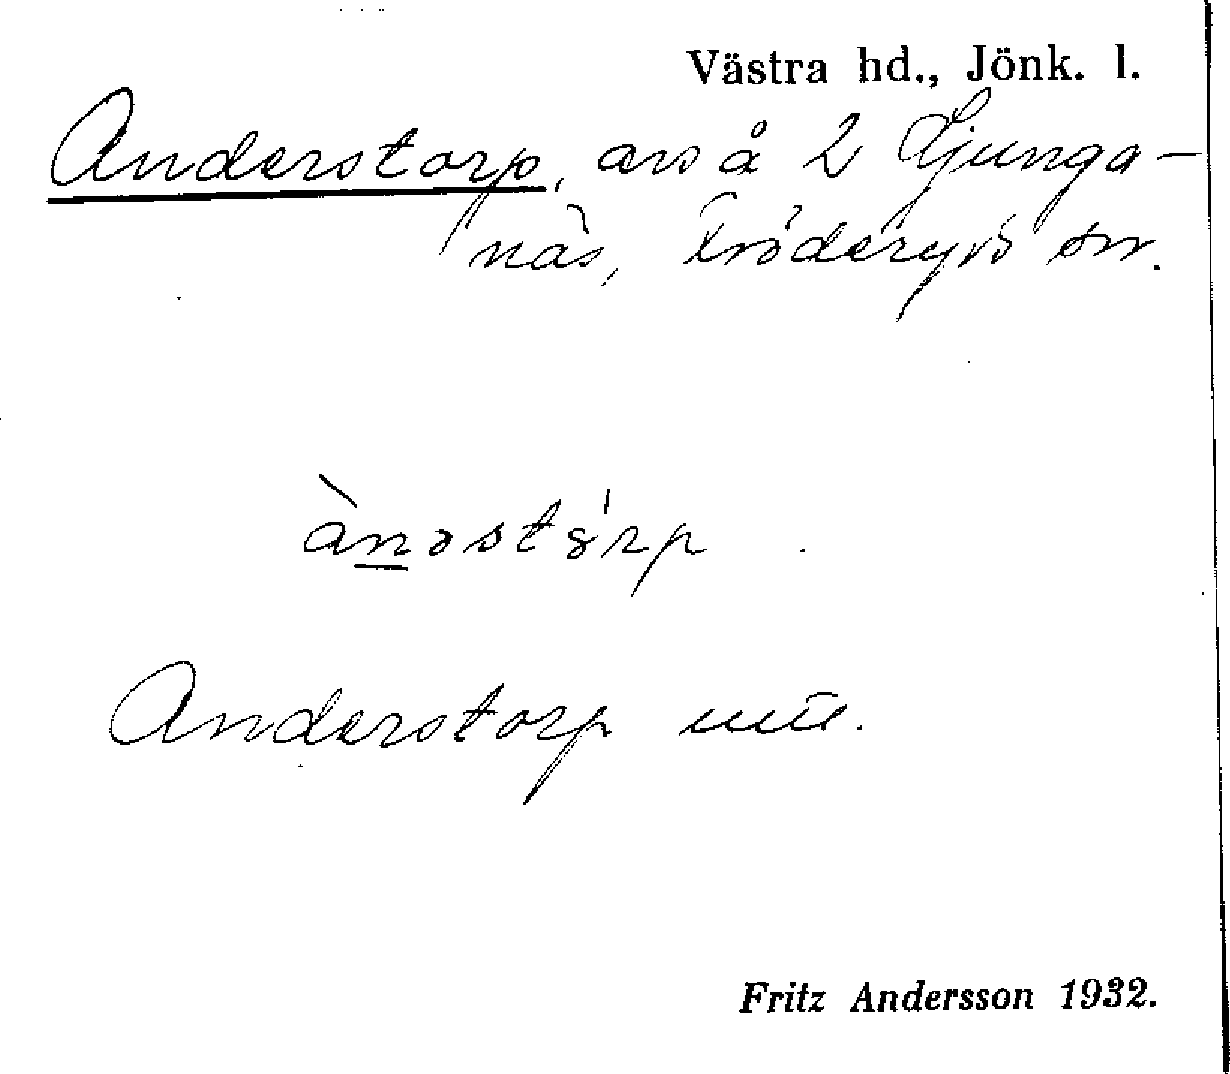 Västra hd., Jönk. l.
Anderstorp, avs å 2 Ljunga-
näs, Fröderyds sn.
ànəstȣ́rp
Anderstorp
Fritz Andersson 1932.